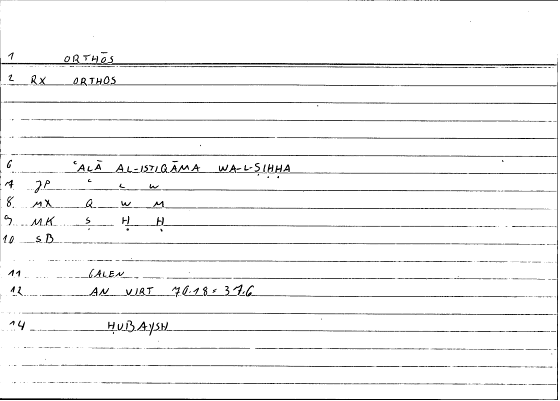 1 ORTHŌS
2 RX ORTHOS
6 ʿALĀ AL-ISTIQĀMA WA-L-ṢIḤḤA
7 JP ʿ L W
8 MX Q W M
9 MK Ṣ Ḥ Ḥ
10 SB
11 GALEN
12 AN VIRT 70.18 = 37.6
14 ḤUBAYSH